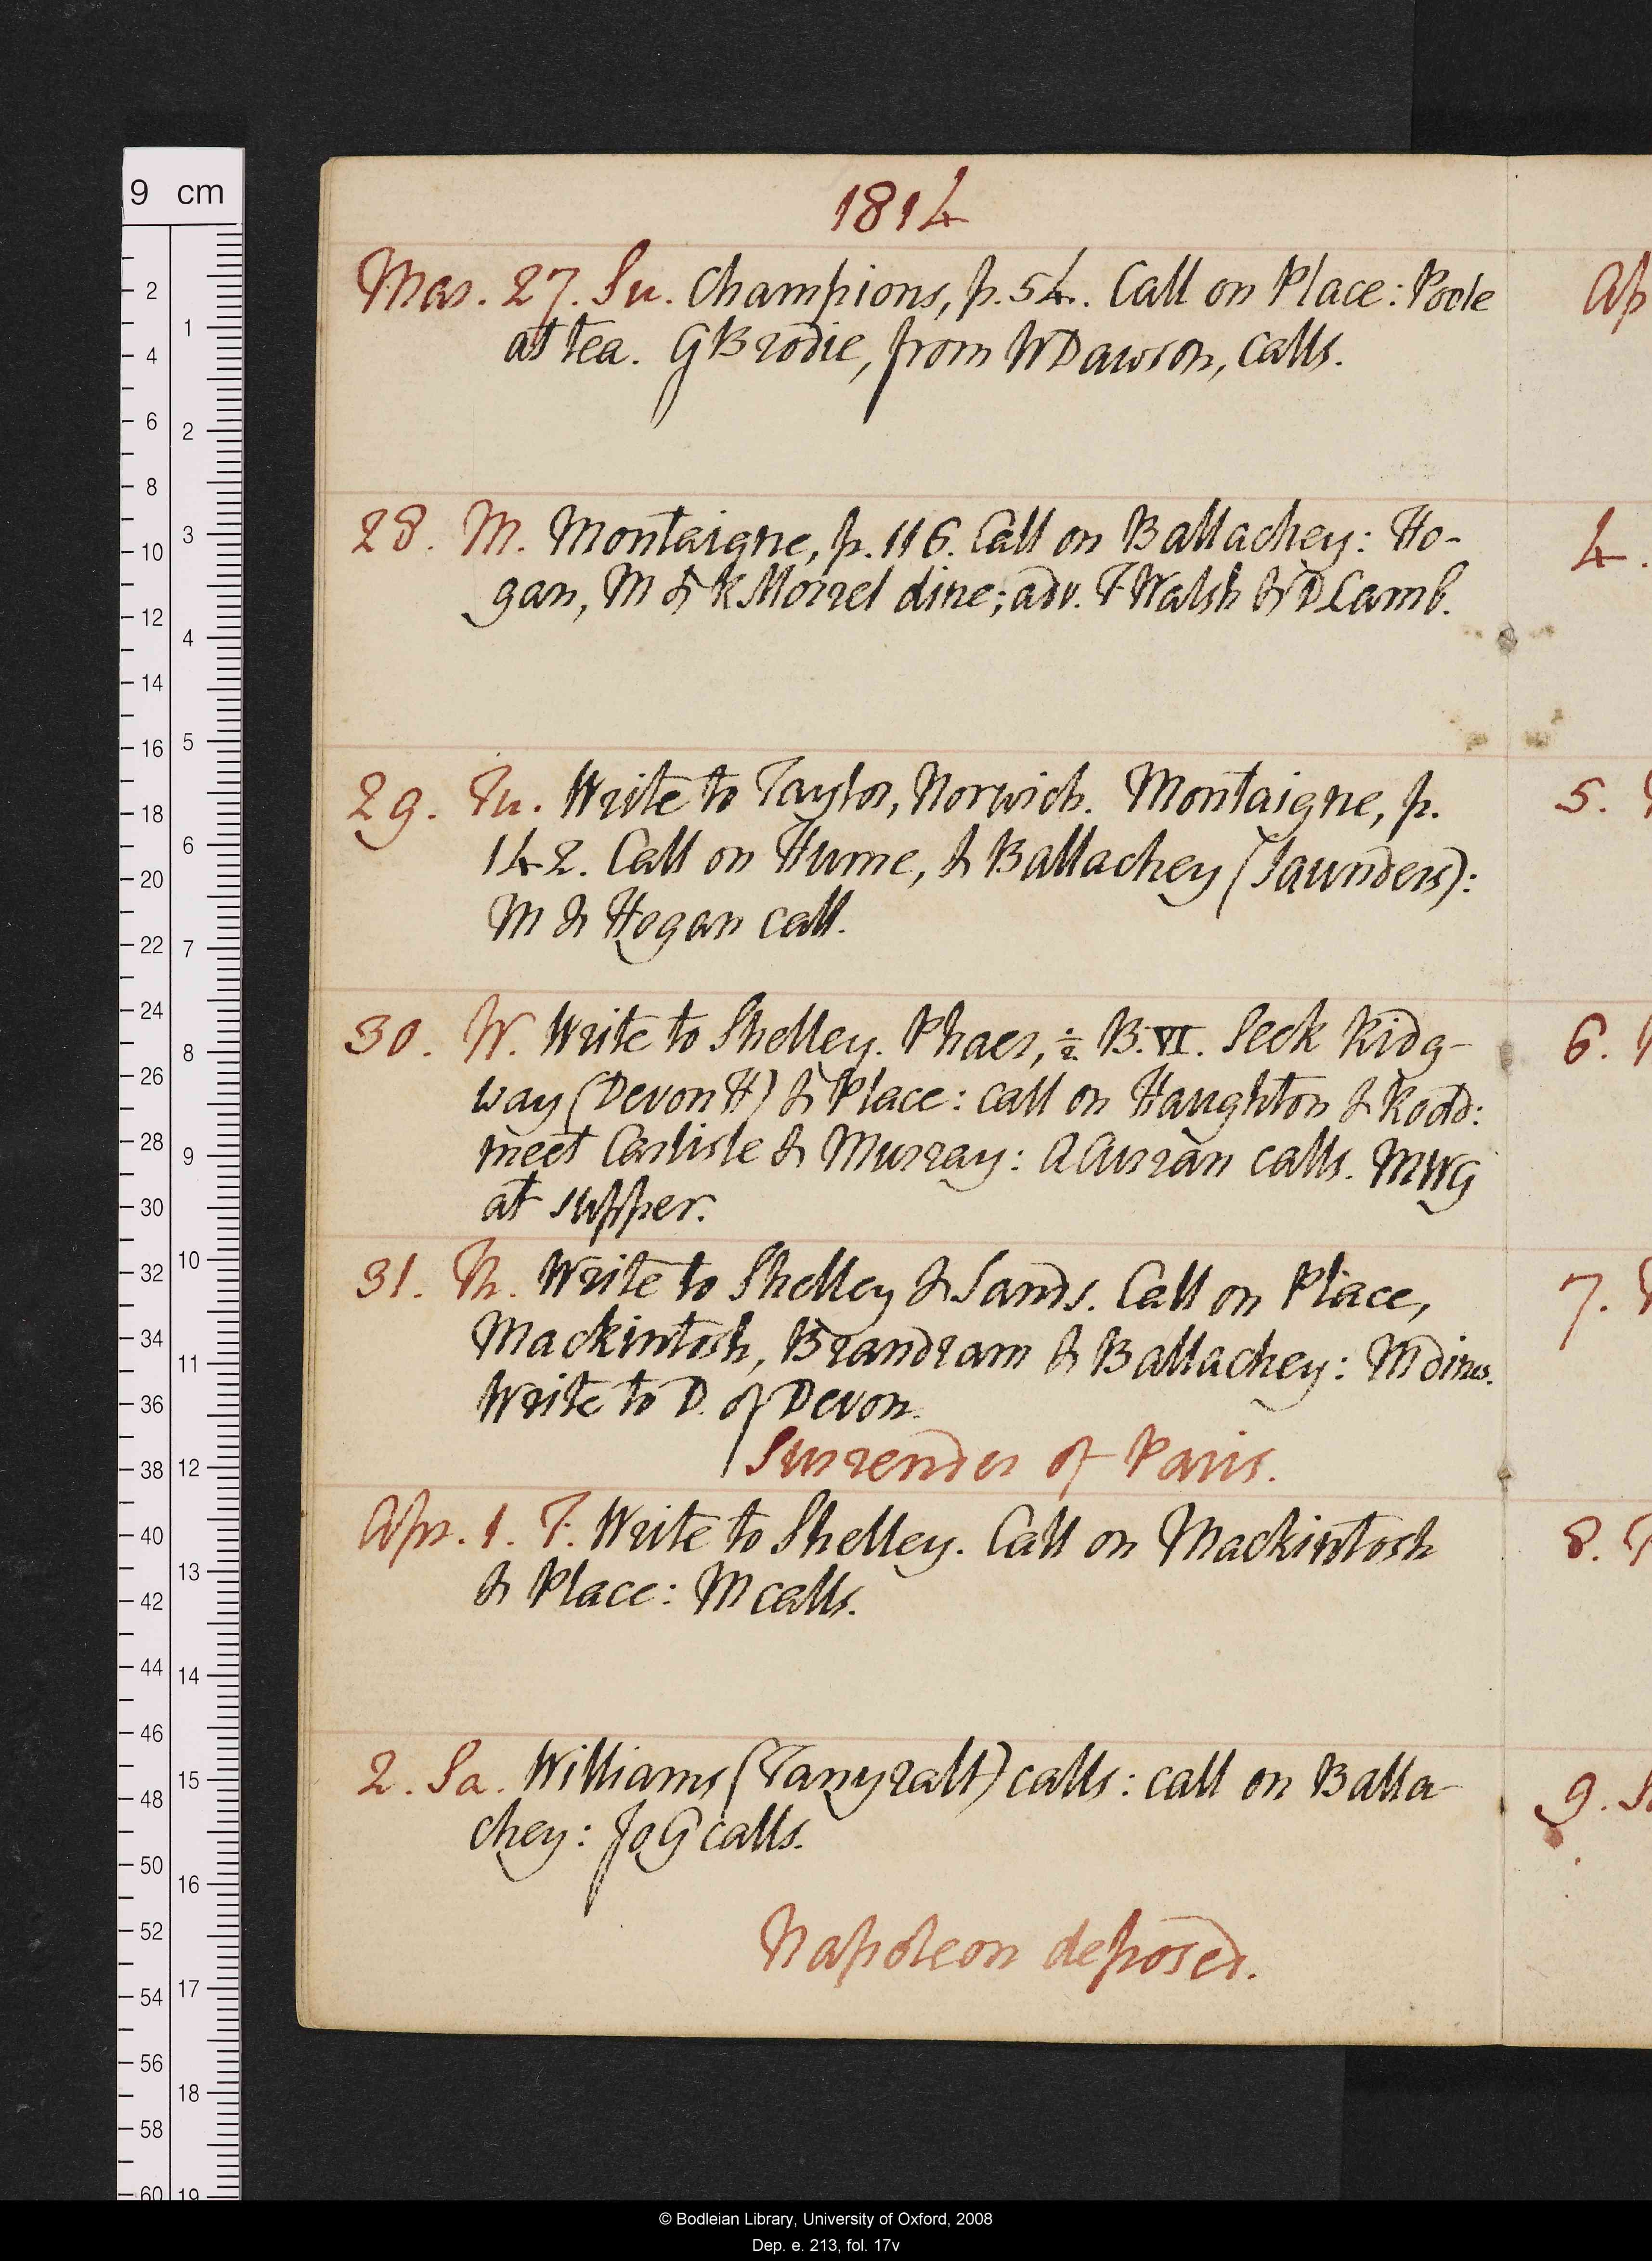 1814
Mar. 27. Su. Champions, p. 54. Call on Place: Poole
at tea. G Brodie, from W Dawson, calls.
28. M. Montaigne, p. 116. Call on Ballachey: Ho-
gan, M & K Morrel dine; adv. T Walsh & D Lamb.
29. Tu. Write to Taylor, Norwich. Montaigne, p.
142. Call on Hume, & Ballachey (Saunders):
M & Hogan call.
30. W. Write to Shelley. Phaer, ½ B. VI. Seek Ridg-
way (Devon H) & Place: call on Haughton & Rodd:
meet Carlisle & Murray: A Curran calls. MWG
at supper.
31. Th. Write to Shelley & Sands. Call on Place,
Mackintosh, Brandram & Ballachey: M dines.
Write to D. of Devon.
Surrender of Paris.
Apr. 1. F. Write to Shelley. Call on Mackintosh
& Place: M calls.
2. Sa. Williams (Tanyralt) calls: call on Balla-
chey: Jo G calls.
Napoleon deposed.
Ap
4.
5.
6.
7.
8.
9. S
9 cm
2
4
6
8
10
12
14
16
18
20
22
24
26
28
30
32
34
36
38
40
42
44
46
48
50
52
54
56
58
60
1
2
3
4
5
6
7
8
9
10
11
12
13
14
15
16
17
18
19
© Bodleian Library, University of Oxford, 2008
Dep. e. 213, fol. 17v